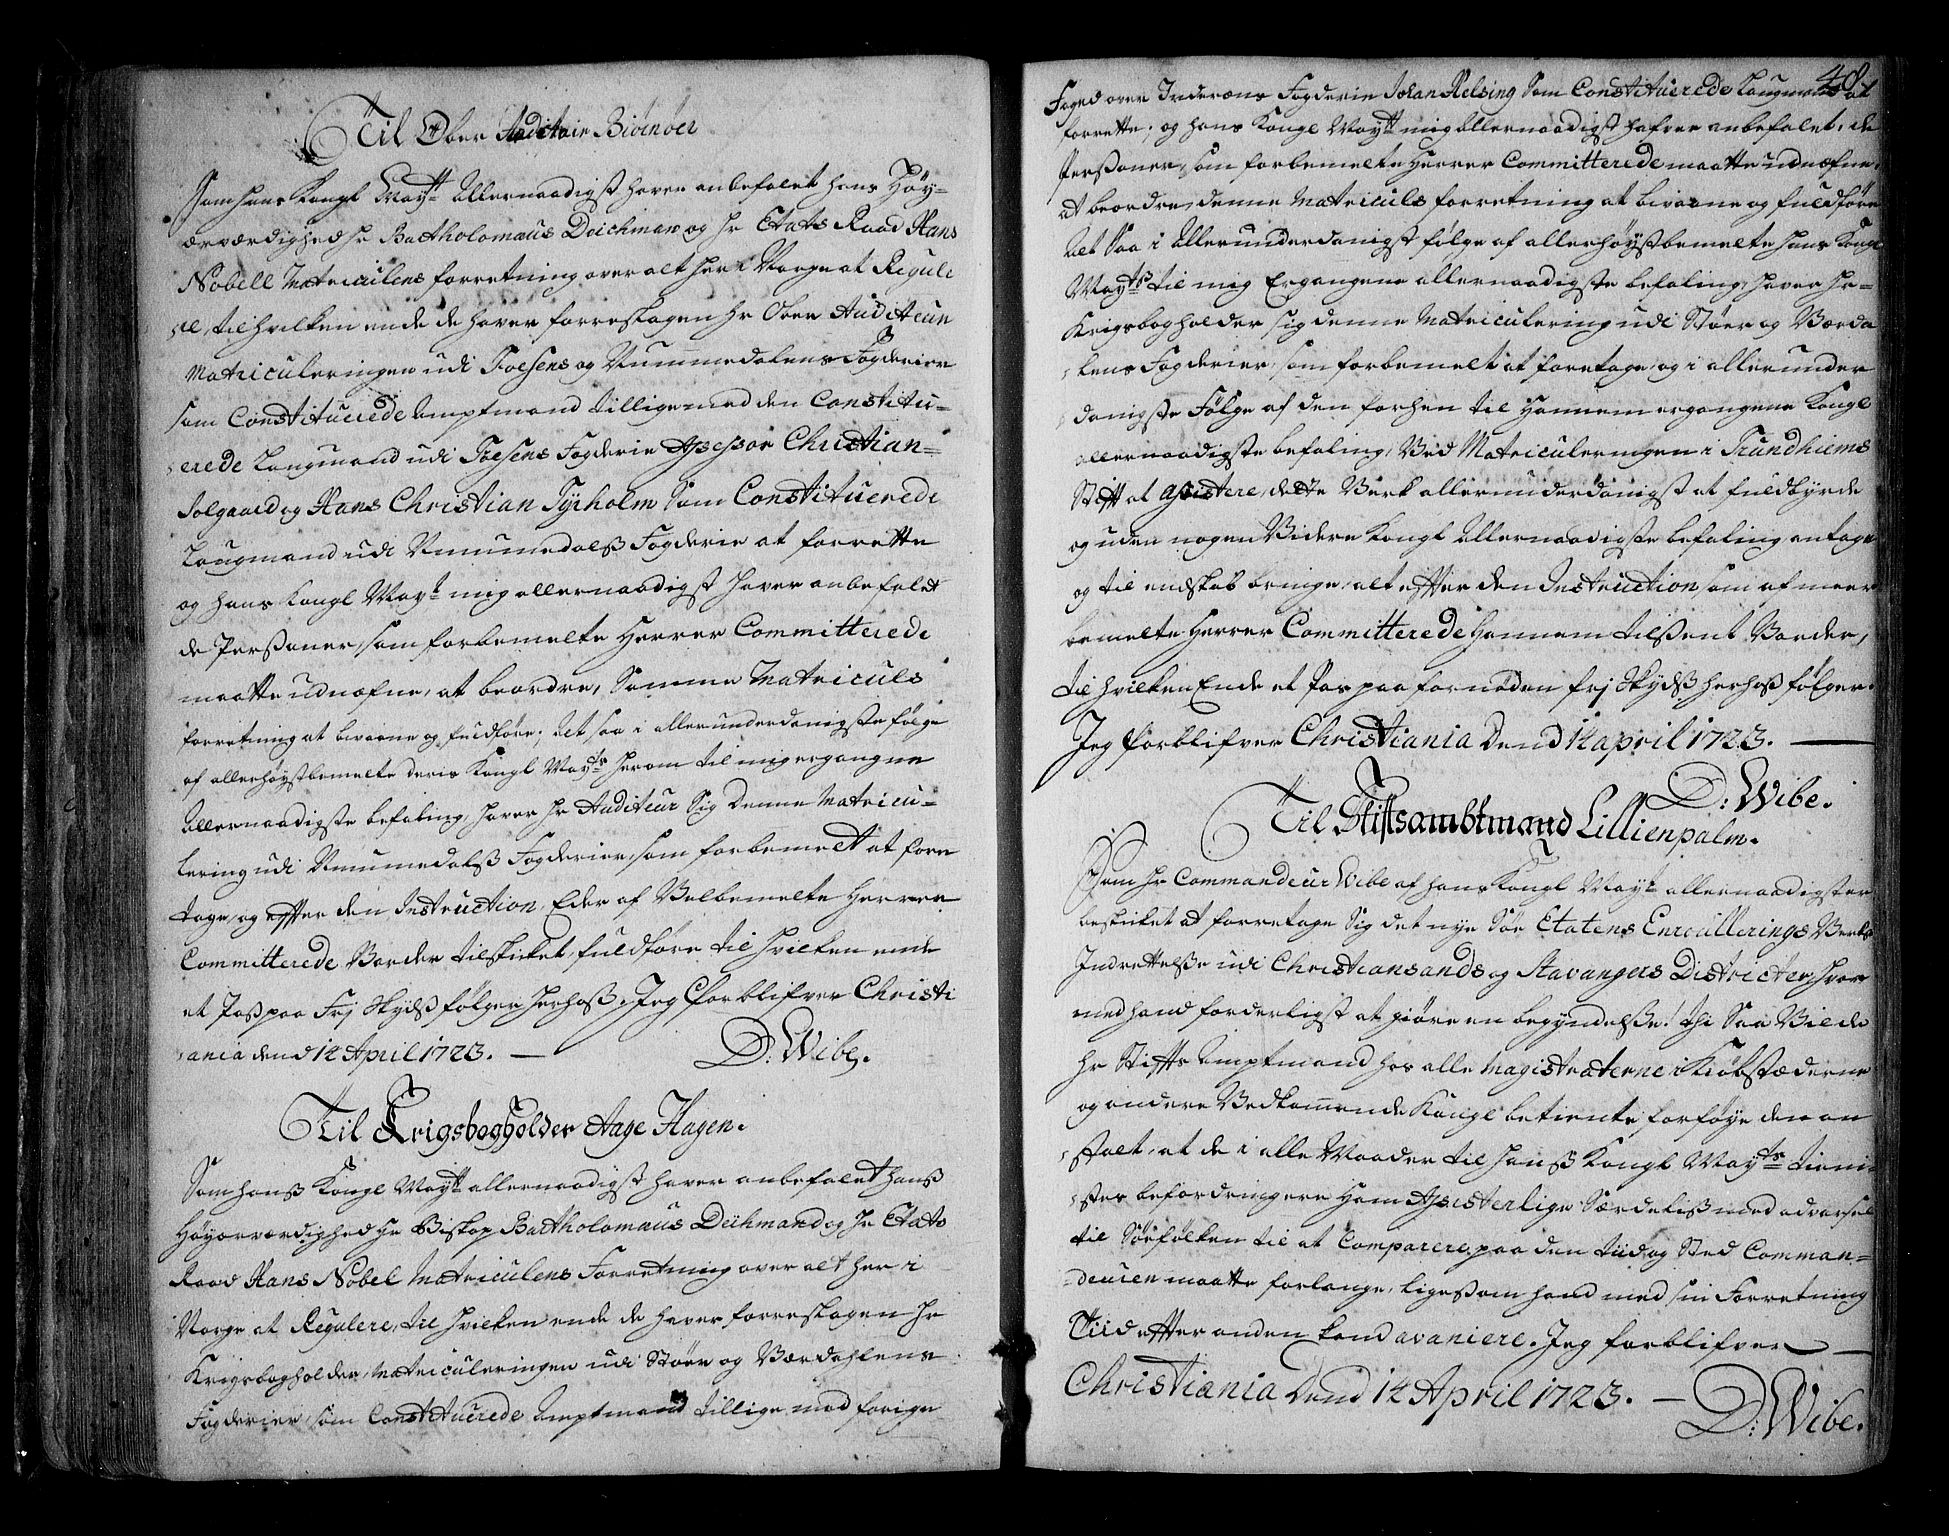 Til Ober Auditeur Biørnøer
Som hans Kongl Maytt Allernaadigst haver anbefalet hans Høy=
ærværdighed Hr Bartholomæus Deichman og Hr Etats Raad Hans
Nobell Matriculens forretning over alt her i Norge at Regule
re, til hvilken ende de haver forreslagen Hr Ober Auditeur
Matriculeringen udi Foesens og Nummedalens Fogderier
som Constituerede Amptmand tillige med den Constitu=
erede Laugmand udi Foesens Fogderie Assessor Christian
Solgaard og Hans Christian Tyrholm Som Constituerede
Laugmand udi Nummedalß Fogderie at forrette
og hans Kongl Maytt mig allernaadigst haver anbefalet
de Persohner, som forbemelte Herrer Committerede
maatte udnæfne, at beordre, Samme Matriculs
forretning at bivaane og fuldføre; Det saa i allerunderdanigste følge
af allerhøystbemelte deris Kongl Mayts herom til mig ergangne
Allernaadigste befaling, haver Hr Auditeur Sig denne Matricu=
lering udi Nummedalß Fogderier, som forbemelt at fore
tage, og effter den Instruction, Eder af Velbemelte Herrer
Committerede Vorder tilskicket, fuldføre til hvilken ende
et Paß paa Frj Skydß følger herhoß. Jeg forblifver Christi
ania dend 14 April 1723. —
D: Wibe.
Til Krigsbogholder Aage Hagen.
Som hanß Kongl Maytt allernaadigst haver anbefalet hanß
Høyærværdighed Hr Biskop Bartholomæus Deihmand og Hr Etats
Raad Hans Nobel Matriculens Forretning over alt her i
Norge at Regulere, til hvilken ende de haver forreslagen Hr
Krigsbogholder, Matriculeringen udi Støer og Værdahlens
Fogderier, som Constituerede Amptmand tillige med forige
48
Foged over Inderøens Fogderie Johan Kelsing Som Constituerede Laugmand at
forrette; og hans Kongl Maytt mig Allernaadigst hafver anbefalet, de
Persohner, som forbemelte Herrer Committerede maatte udnæfne,
at beordre, denne Matriculs forretning at bivaane og fuldføre
Det Saa i Allerunderdanigst følge af allerhøystbemelte hans Kongl
Mayts til mig Ergangene allernaadigste befaling, haver Hr=
Krigsbogholder sig denne Matriculering udi Støer og Værda
lens Fogderier, som forbemelt at foretage, og i allerunder
danigste Følge af den forhen til Hannem ergangene Kongl
allernaadigste befaling, Ved Matriculeringen i Trundhiems
Stifft at assistere, dette Værk allerunderdanigst at fuldbyrde
og uden nogen Videre Kongl Allernaadigste befaling antage
og til endskab bringe, alt effter den Instruction, som af meer
bemelte Herrer Committerede Hannem tilsent Vorder,
til hvilken Ende et Pas paa fornøden frj Skydß herhoß følger.
Jeg forblifver Christiania Dend 14 april 1723. —
D: Wibe.
Til Stiftsambtmand Lillienpalm.
Som Hr Commandeur Wibe af hans Kongl Maytt allernaadigster
beskicket at forretage Sig det nye Søe Etatens Enroullerings Verks
Indrettelße udi Christiansands og Stavangers Districter, hvor
med hand forderligst at giøre en begyndelße! thi Saa Vilde
Hr Stiffts Amptmand hos alle Magistraterne i Kiøbstæderne
og andere Vedkommende Kongl betiente forføye den an
stalt, at de i alle Maader til hanß Kongl Mayts tieni
stes befordring ere ham Assisterlige Særdeliß med advarsel
til Søefolken til at Comparere, paa den tiid og Sted Comman=
=deuren maatte forlange, ligesom hand med sin Forretning
Tiid effter anden kand avaniere. Jeg forblifver —
Christiania Dend 14 April 1723. —
D: Wibe.